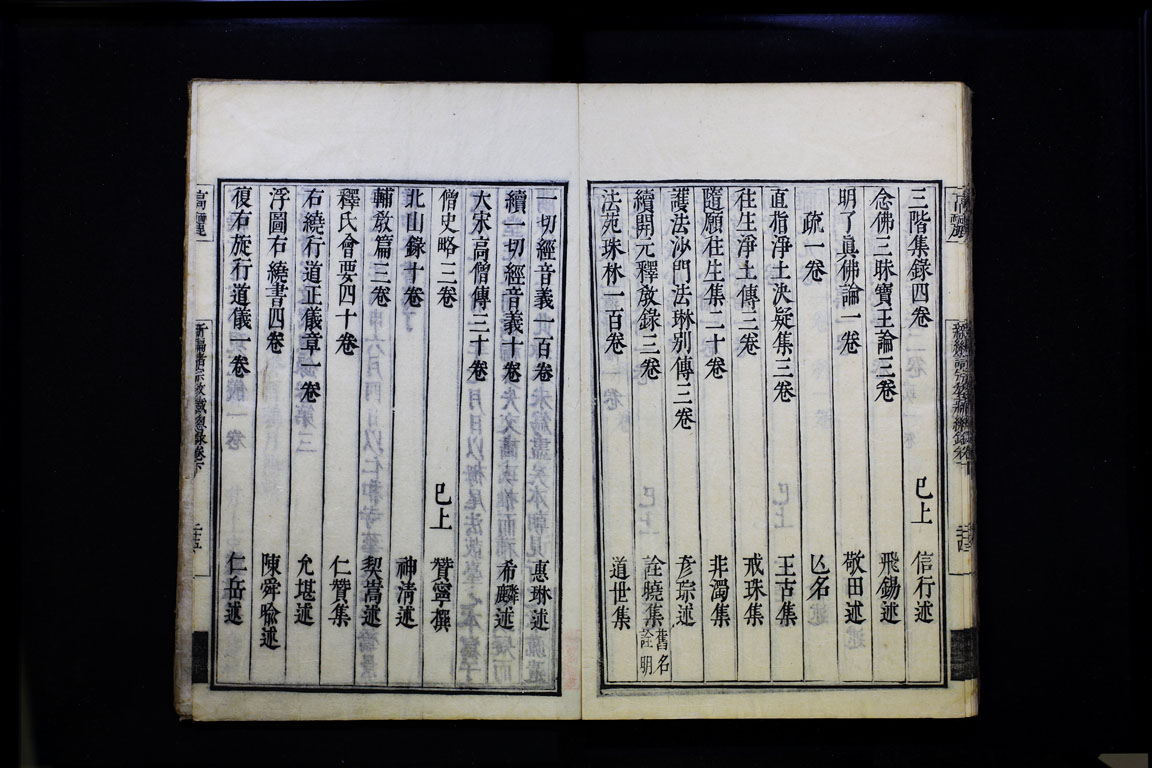 三階集錄四卷 巳上 信行述
念佛三昧寶王論三卷 飛錫述
明了眞佛論一卷 敬田述
疏一卷 亾名
直指淨土決疑集三卷 王古集
往生淨土傳三卷 戒珠集
隨願往生集二十卷 非濁集
護法沙門法琳別傳三卷 彥琮述
續開元釋敎錄三卷 詮曉集舊名詮明
法苑珠林一百卷 道世集
一切經音義一百卷 惠琳述
續一切經音義十卷 希麟述
大宋高僧傳三十卷
僧史略三卷 巳上 贊寧撰
北山錄十卷 神清述
輔敎篇三卷 契嵩述
釋氏會要四十卷 仁贊集
右繞行道正儀章一卷 允堪述
浮圖右繞書四卷 陳舜隃述
復右旋行道儀一卷 仁岳述
高麗
新編諸宗敎藏總錄卷下
二十五